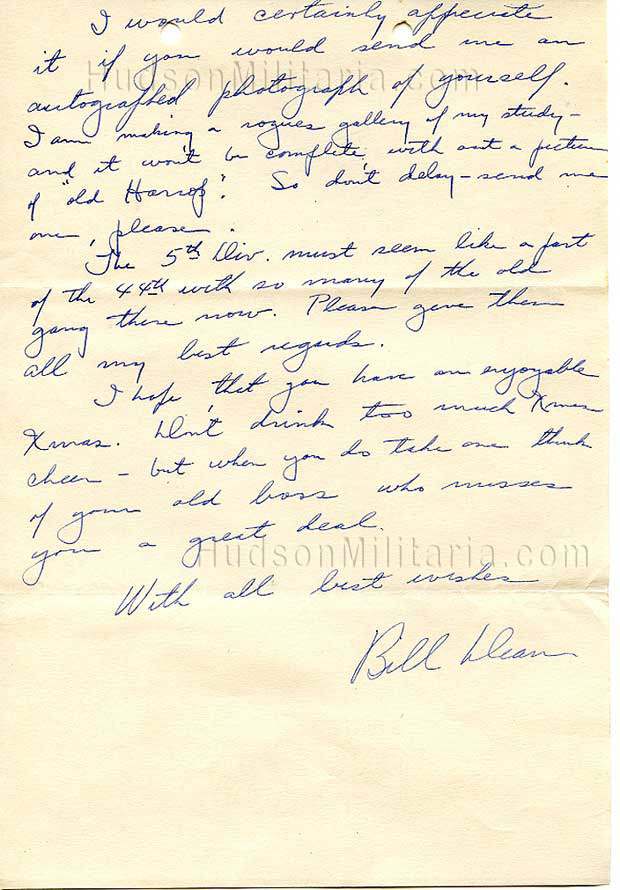 I would certainly appreciate
it if you would send me an
HudsonMilitaria.com
autographed photograph of yourself.
I am making a rogues gallery of my study-
and it won't be complete, with out a picture
of "old Harrop". So don't delay-send me
one, please.
The 5th Div. must seem like a part
of the 44th with so many of the old
gang there now. Please give them
all my best regards.
I hope, that you have an enjoyable
Xmas. Don't drink too much Xmas
cheer - but when you do take one think
of your old boss who misses
you a great deal.
HudsonMilitaria.com
With all best wishes
Bill Dean